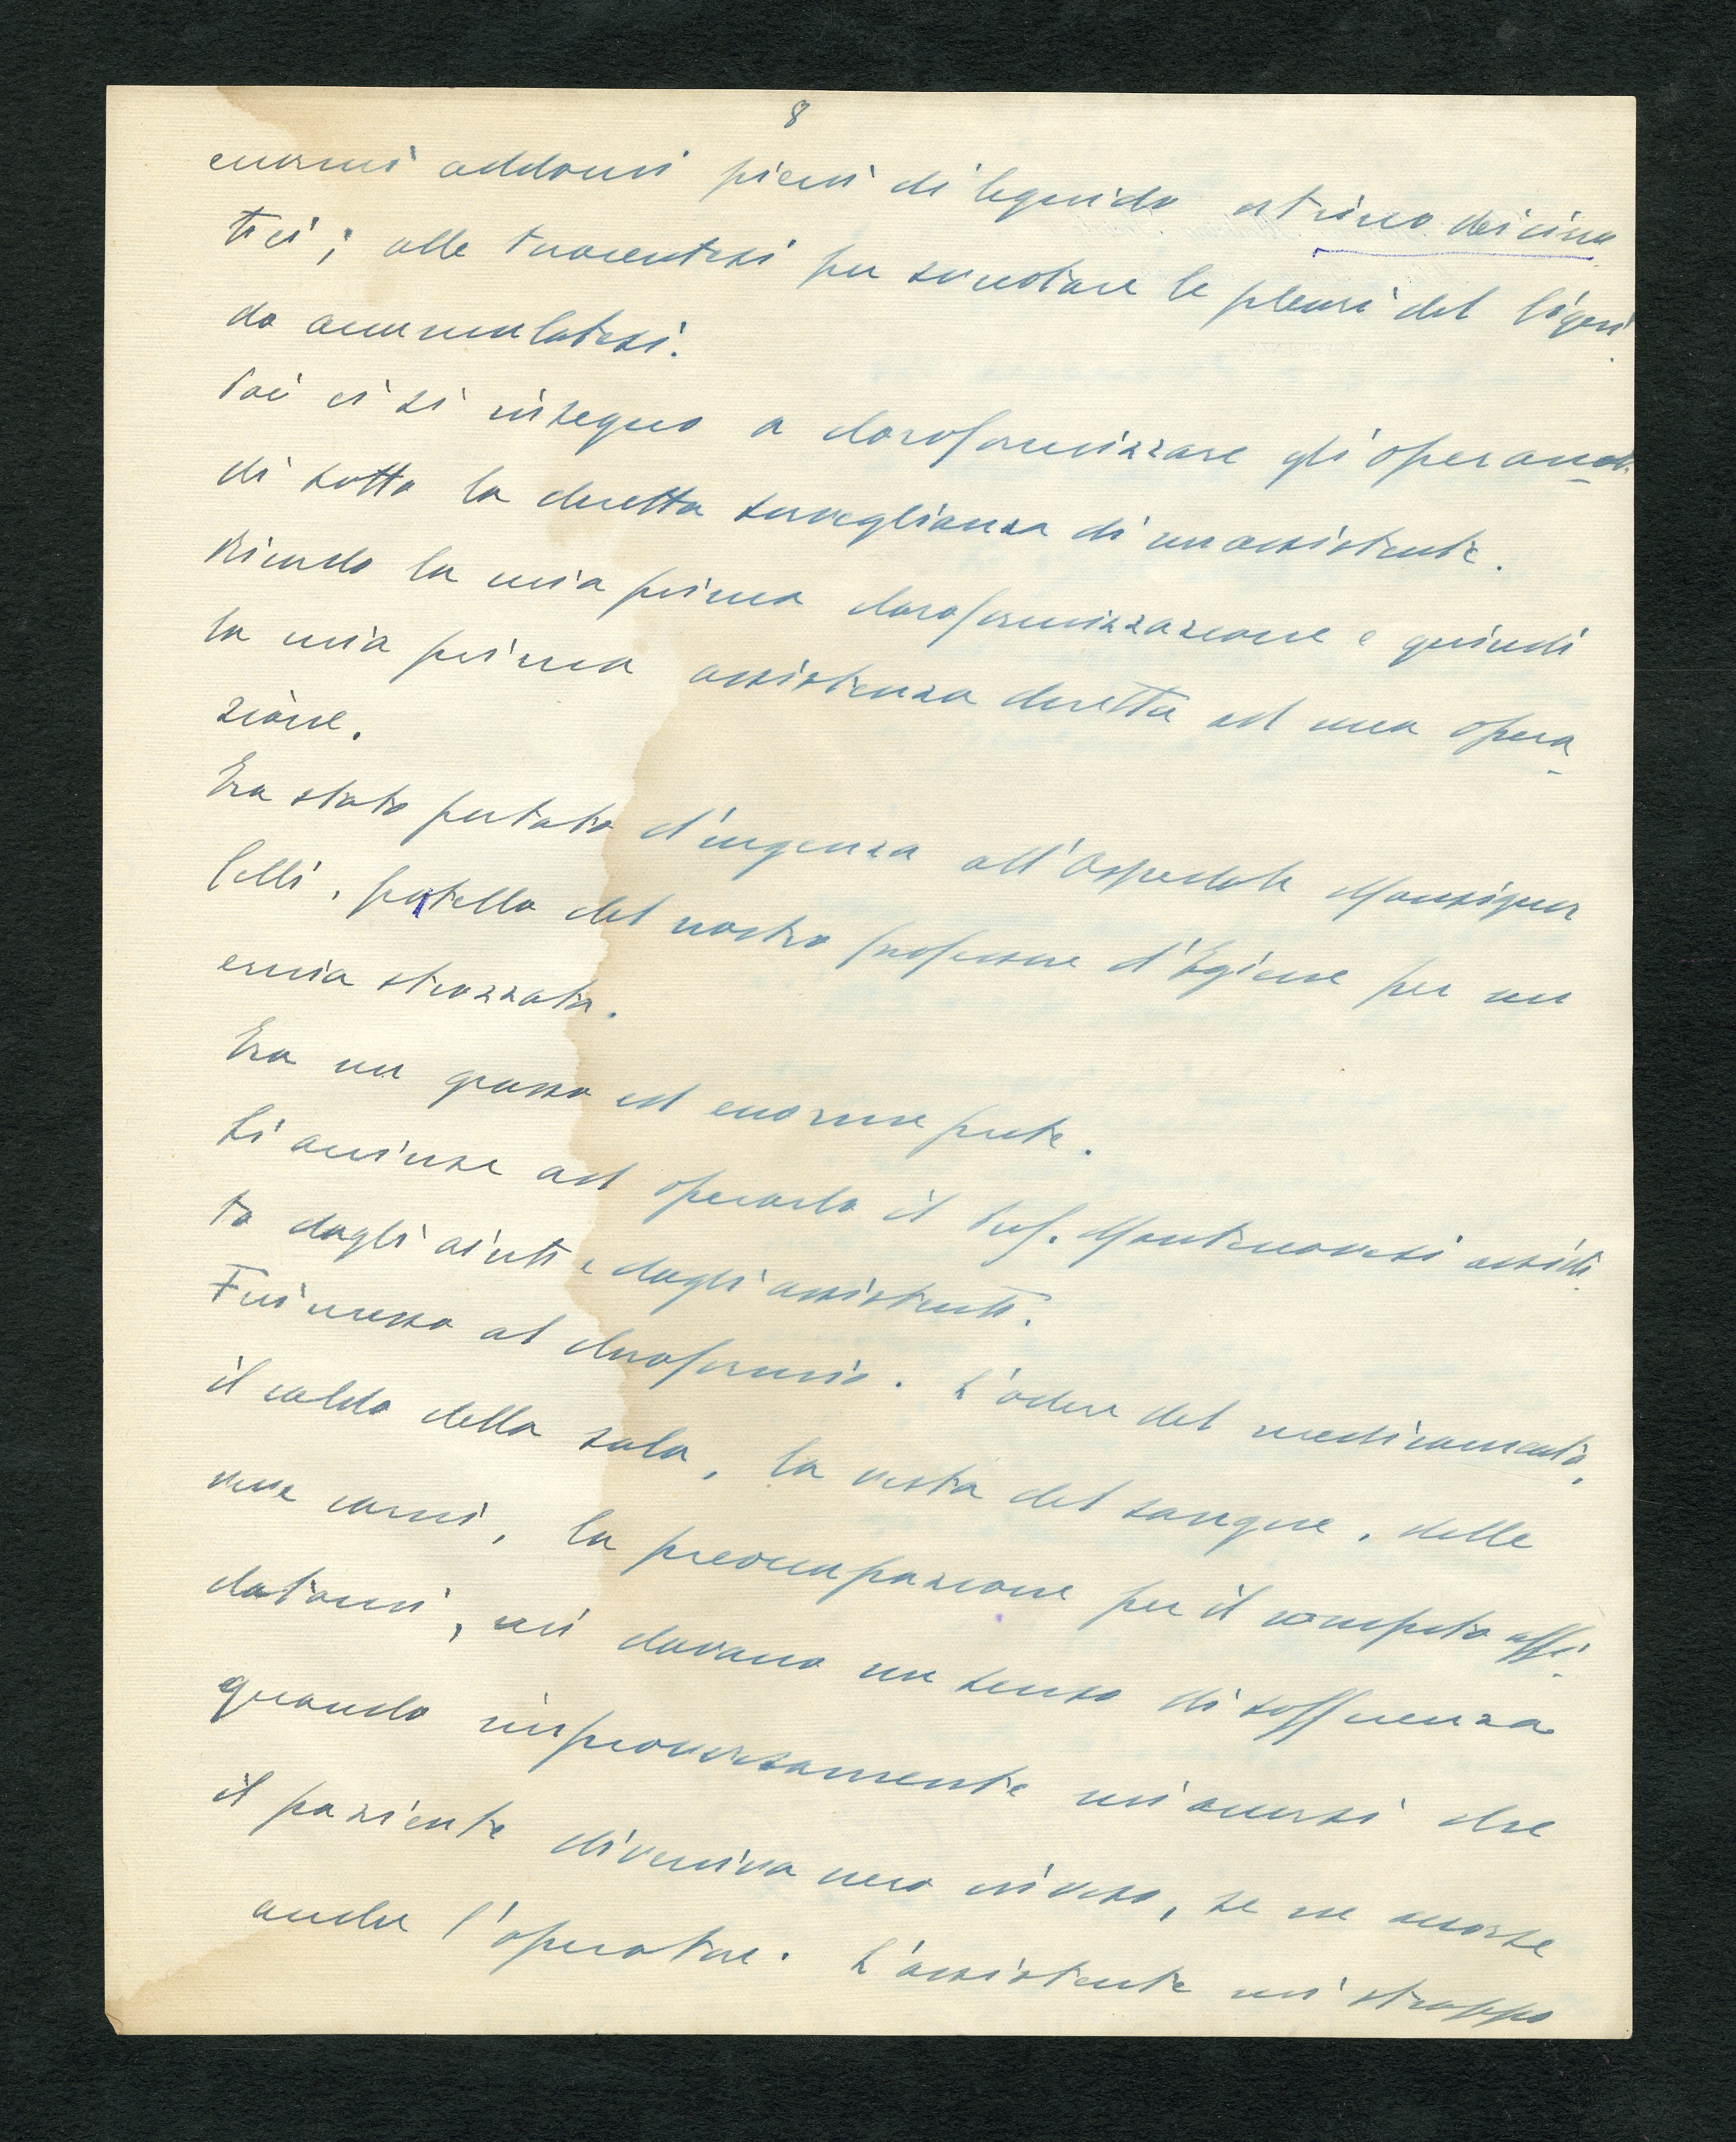 8
enormi addomi pieni di liquido citrino dei cirro
tici; alle toracentesi per svuotare le pleuri del liqui
do accumulatosi.
Poi ci si insegnò a cloroformizzare gli operan
di sotto la diretta sorveglianza di un assistente.
Ricordo la mia prima cloroformizzazione e quindi
la mia prima assistenza diretta ad una opera
zione.
Era stato portato d'urgenza all'Ospedale Monsignor
Celli, fratello del nostro professore d'Igiene per un
ernia strozzata.
Era un grosso ed enorme prete.
Si accinse ad operarlo il Prof. Montenovesi assisti
to dagli aiuti e dagli assistenti.
Fui messo al cloroformio. L'odore del medicamento,
il caldo della sala, la vista del sangue, delle
vive carni, la preoccupazione per il compito affi
datomi, mi davano un senso di sofferenza
quando improvvisamente mi accorsi che
il paziente diveniva nero in viso, se ne accorse
anche l'operatore. L'assistente mi strappò